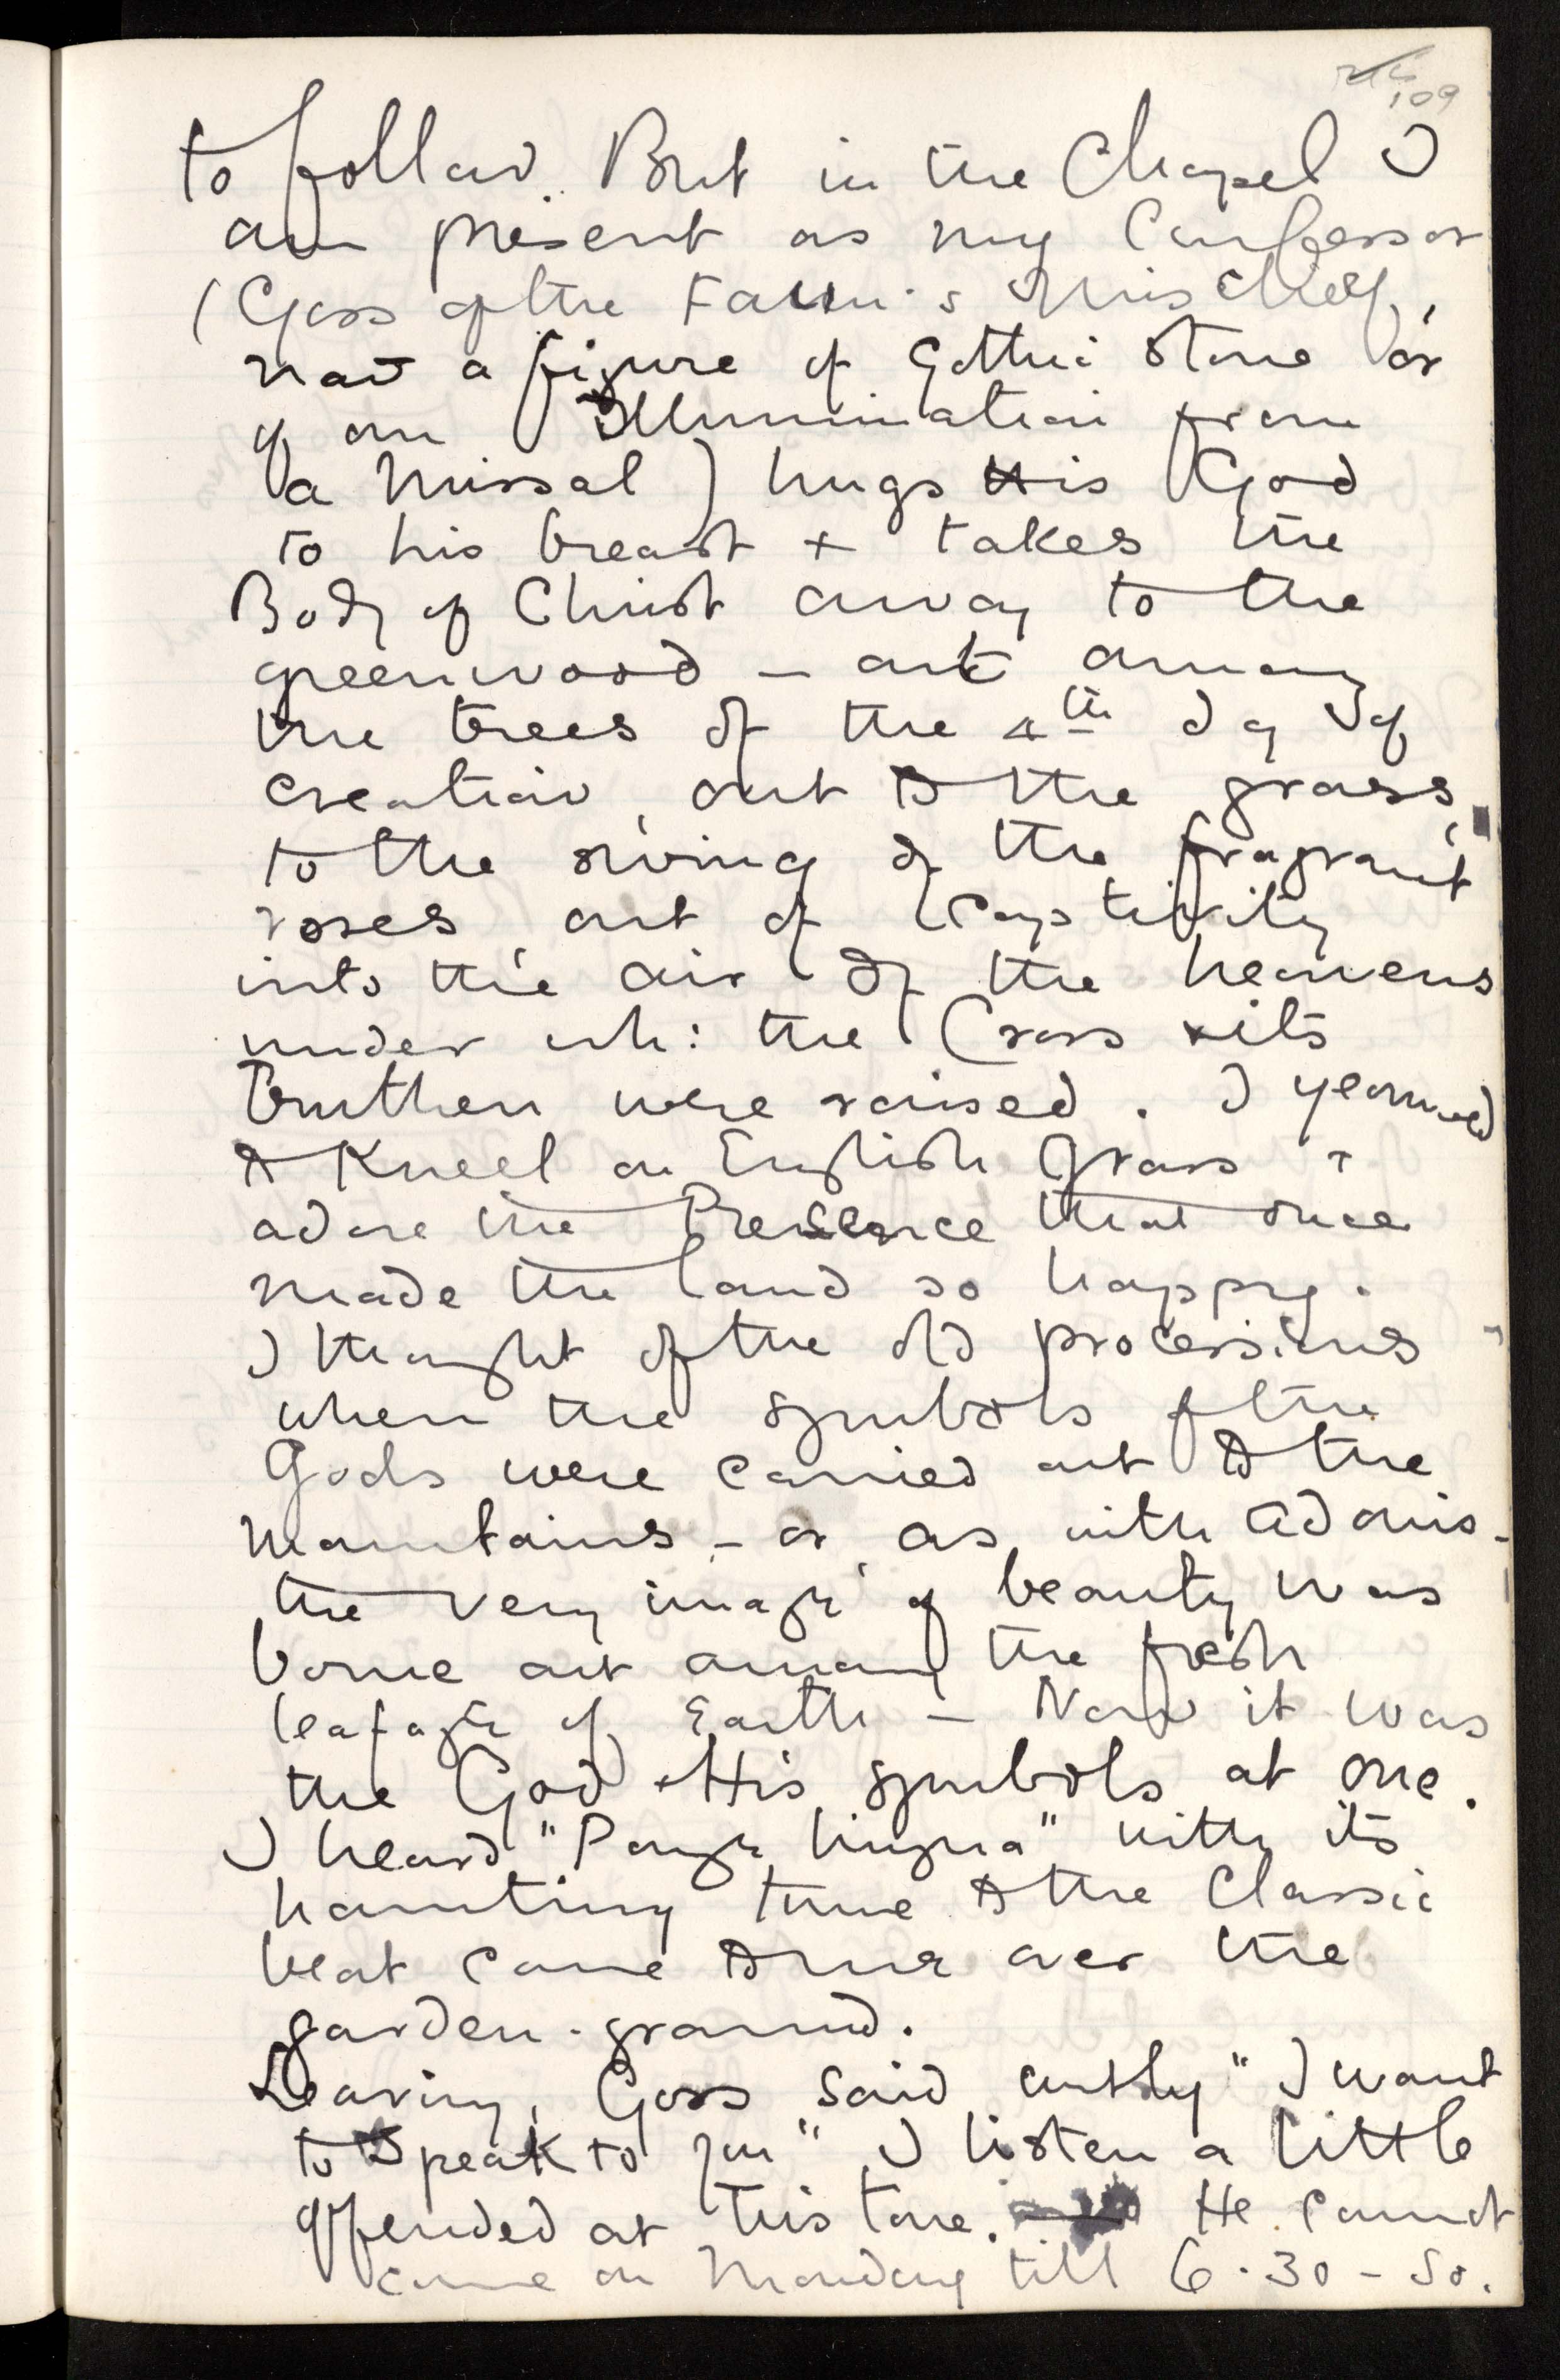 109
to follow. But in the Chapel I
am present as my Confessor
(Goss of the Faun's Mischief,
now a figure of Gothic stone or
of an Illumination from
a Missal) hugs His God
to his breast + takes the
Body of Christ away to the
greenwood — out among
the trees of the 4th day of
creation, out to the grass,
to the swing of the fragrant
roses, out of Captivity
into the air of the heavens
under wh: the Cross + its
burthen were raised. I yearned
to kneel on English grass +
adore the Presence that once
made the land so happy.
I thought of the old processions
when the symbols of the
Gods were carried out to the
mountains — or, as with Adonis —
the very image of beauty was
borne out among the fresh
leafage of Earth — Now it was
the God + His symbols at one.
I heard "Pange Lingua" with its
haunting tune to the Classic
beat come to me over the
garden-ground.
Leaving, Goss said curtly "I want
to speak to you" I listen a little
offended at this tone. He cannot
come on Monday till 6.30 — So.